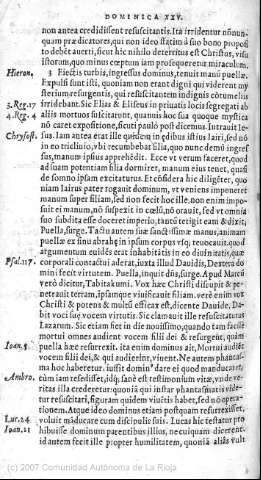 DOMINICA XXV.
non antea credidissent resuscitantis. Ita irridentur nõnun-
quam prædicatores, qui non ideo statim à suo bono proposi
to debẽt auerti, sicut hic nihilo deterritus est Christus, visu
istorum, quo minus cœptum iam prosequeretur miraculum.
Hieron.
3 Eiectis turbis, ingressus dominus, tenuit manũ puellæ.
Expulsi sunt isti, quoniam non erant digni qui viderent my
sterium resurgentis, qui resuscitantem indignis cõtumeliis
3. Reg. 17
irridebant. Sic Elias & Eliseus in priuatis locis segregati ab
4. Reg. 4
aliis mortuos suscitarunt, quamuis hoc sua quoque mystica
nõ caret expositione, sicuti paulò pòst dicemus. Intrauit Ie-
Chrysost.
sus. Iam antea erat ille quidem in ædibus istius Iairi, sed nõ
in eo triclinio, vbi recumbebat filia, quo nunc demũ ingres
sus, manum ipsius apprehẽdit. Ecce vt verum faceret, quod
ad suam potentiam illã dormiret, manum eius tenet, quasi
de somno ipsam excitaturus. Et cõsidera hîc diligẽter, quo
niam Iairus pater rogauit dominum, vt veniens imponeret
manum super filiam, sed non fecit hoc ille. non enim impo-
suit ei manum, nõ suspexit in cœlũ, nõ orauit, sed vt omnia
suo subdita esse doceret imperio, tantũ tetigit eam & dixit,
Puella, surge. Tactu autem suæ sanctissimæ manus, animam
puellæ ex sinu abrahę in ipsum corpus vsq; reuocauit. quod
argumentum euidẽs erat inhabitãtis in eo diuinitatis, quæ
Psal. 117.
corporali contactui aderat, iuxta illud Dauidis, Dextera do
mini fecit virtutem. Puella, inquit dñs, surge. Apud Marcũ
verò dicitur, Tabitakumi. Vox hæc Christi disrupit & pe-
netrauit terram, ipsamque viuificauit filiam. verè enim vox
Christi & potens & multũ efficax est, dicente Dauide, Da-
bit voci suę vocem virtutis. Sic clamauit ille resuscitaturus
Lazarum. Sic etiam fiet in die nouissimo, quando tam facilè
mortui omnes audient vocem filii dei & resurgent, quàm
Ioan. 5.
puella hæc resurrexit. ita enim dominus ait, Mortui audiẽt
vocem filii dei, & qui audierint, viuent. Ne autem phantas-
ma hoc haberetur. iussit domin⁹ dare ei quod manducaret,
Ambro.
cùm iam resedisset, idq; sanè est testimonium vitæ, vnde ve-
ritas illa crederetur: quoniã qui instar phantasmatis viden-
tur resuscitari, figuram quidem viuẽtis habet, sed nõ opera-
tionem. Atque ideo dominus etiam postquam resurrexisset,
Luc. 24.
voluit mãducare cum discipulis suis. Lucas hîc testatur pro
Ioan. 21
hibuisse dominum parentibus illius, necuiquam dicerent.
id autem fecit ille propter humilitatem, quoniã aliàs vult
(c) 2007 Comunidad Autónoma de La Rioja